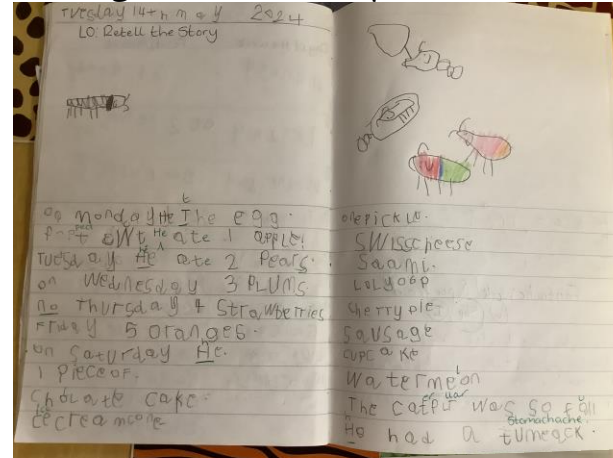 Tuesday 14th may 2024
LO: Retell the Story
on monday He The egg.
ate 1 apple!
Tuesday He ate 2 Pears.
on Wednesday 3 PLUMS
no Thursday 4 Strawberries
Friday 5 oranges.
on saturday He.
1 piece of.
choolate cake.
icecreamcone
onepickle.
SWisscheese
Saami.
LoLyoop
cherryple
sausage
cupcake
Watermelon
The was so full
Stomachache
He had a tumeack.